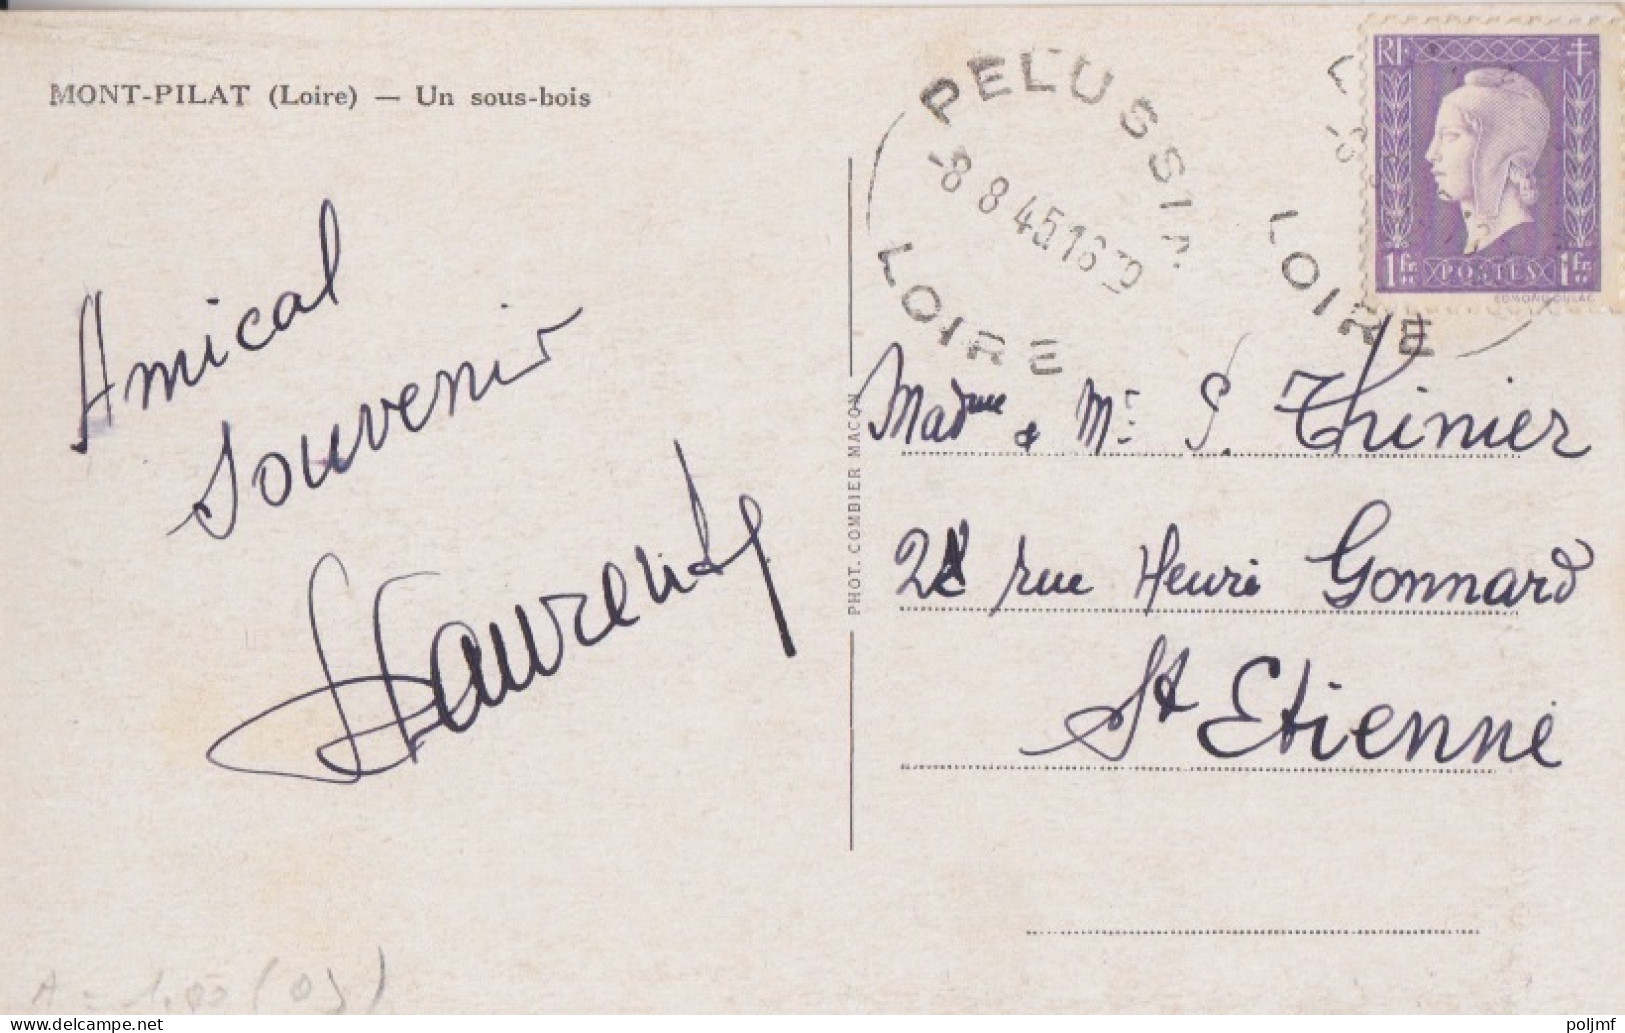 MONT-PILAT (Loire) — Un sous-bois
PELUSSIN
-8 8 45 16 30
LOIRE
LOIRE
RF
1fr POSTES 1fr
EDMOND DULAC
Amical
Souvenir
Laurent
PHOT. COMBIER MACON
Madme & Mr S. Thinier
28 rue Henri Gonnard
St Etienne
A = 1.00 (05)
www.delcampe.net
poljmf